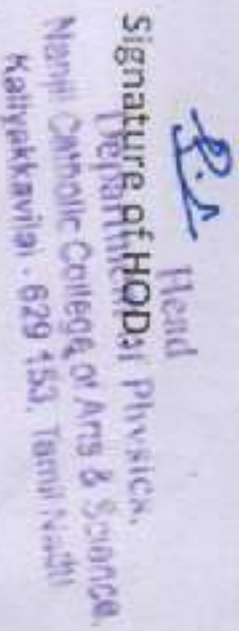 Head
Signature of HOD
Department of Physics,
Nanjil Catholic College of Arts & Science,
Kaliyakkavilai - 629 153, Tamil Nadu